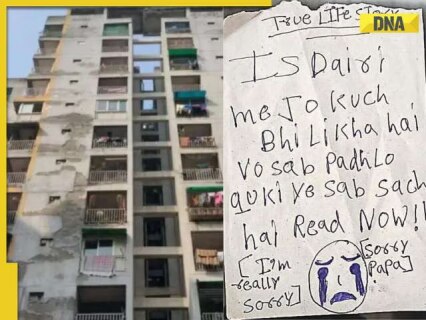 DNA
True LIFe Story
Is Dairi
me Jo kuch
Bhi Likha hai
vo sab Padhlo
quki ye sab sach
hai Read NOW!!
[I'm
really
sorry]
[Sorry
Papa]